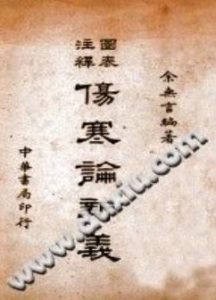 余無言編著
圖表
注釋
傷寒論新義
中華書局印行
www.duxiu.com